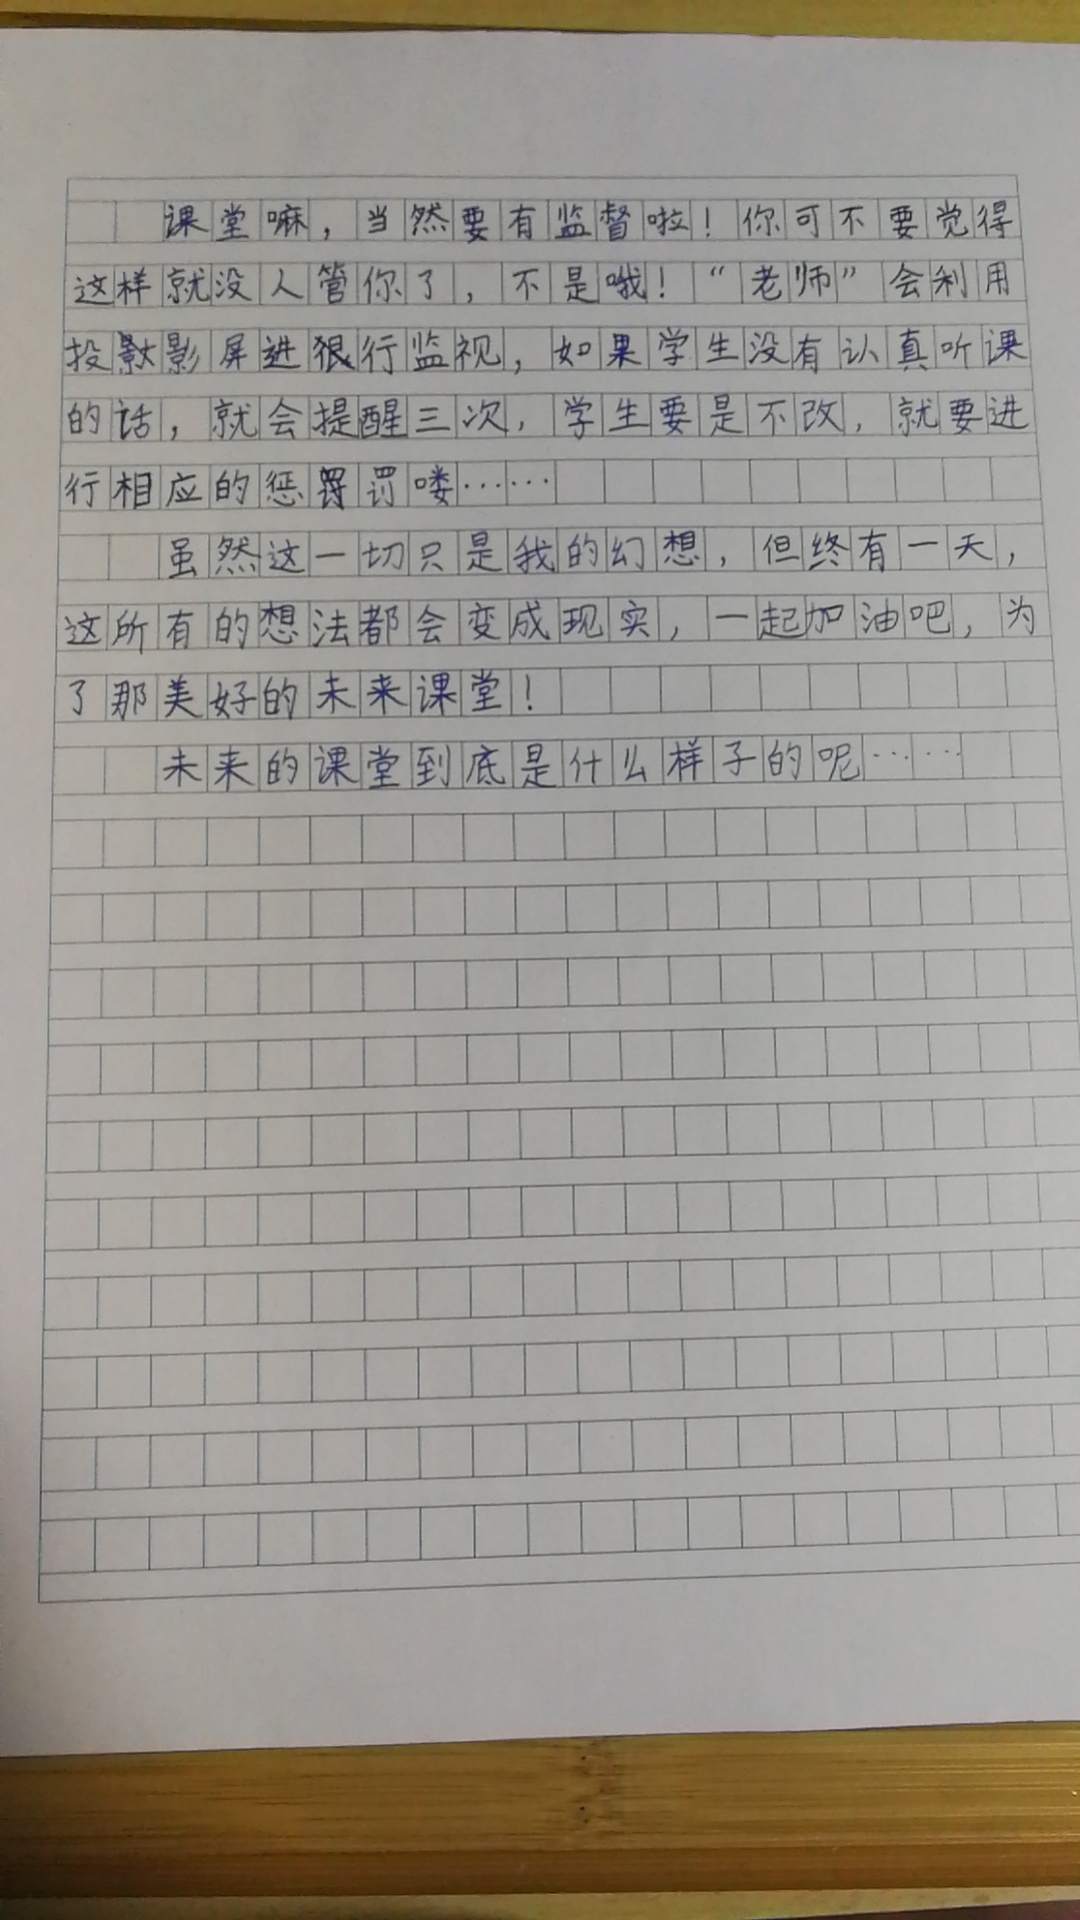 课堂嘛，当然要有监督啦！你可不要觉得
这样就没人管你了，不是哦！“老师”会利用
投影屏进行监视，如果学生没有认真听课
的话，就会提醒三次，学生要是不改，就要进
行相应的惩罚喽……
虽然这一切只是我的幻想，但终有一天，
这所有的想法都会变成现实，一起加油吧，为
了那美好的未来课堂！
未来的课堂到底是什么样子的呢……